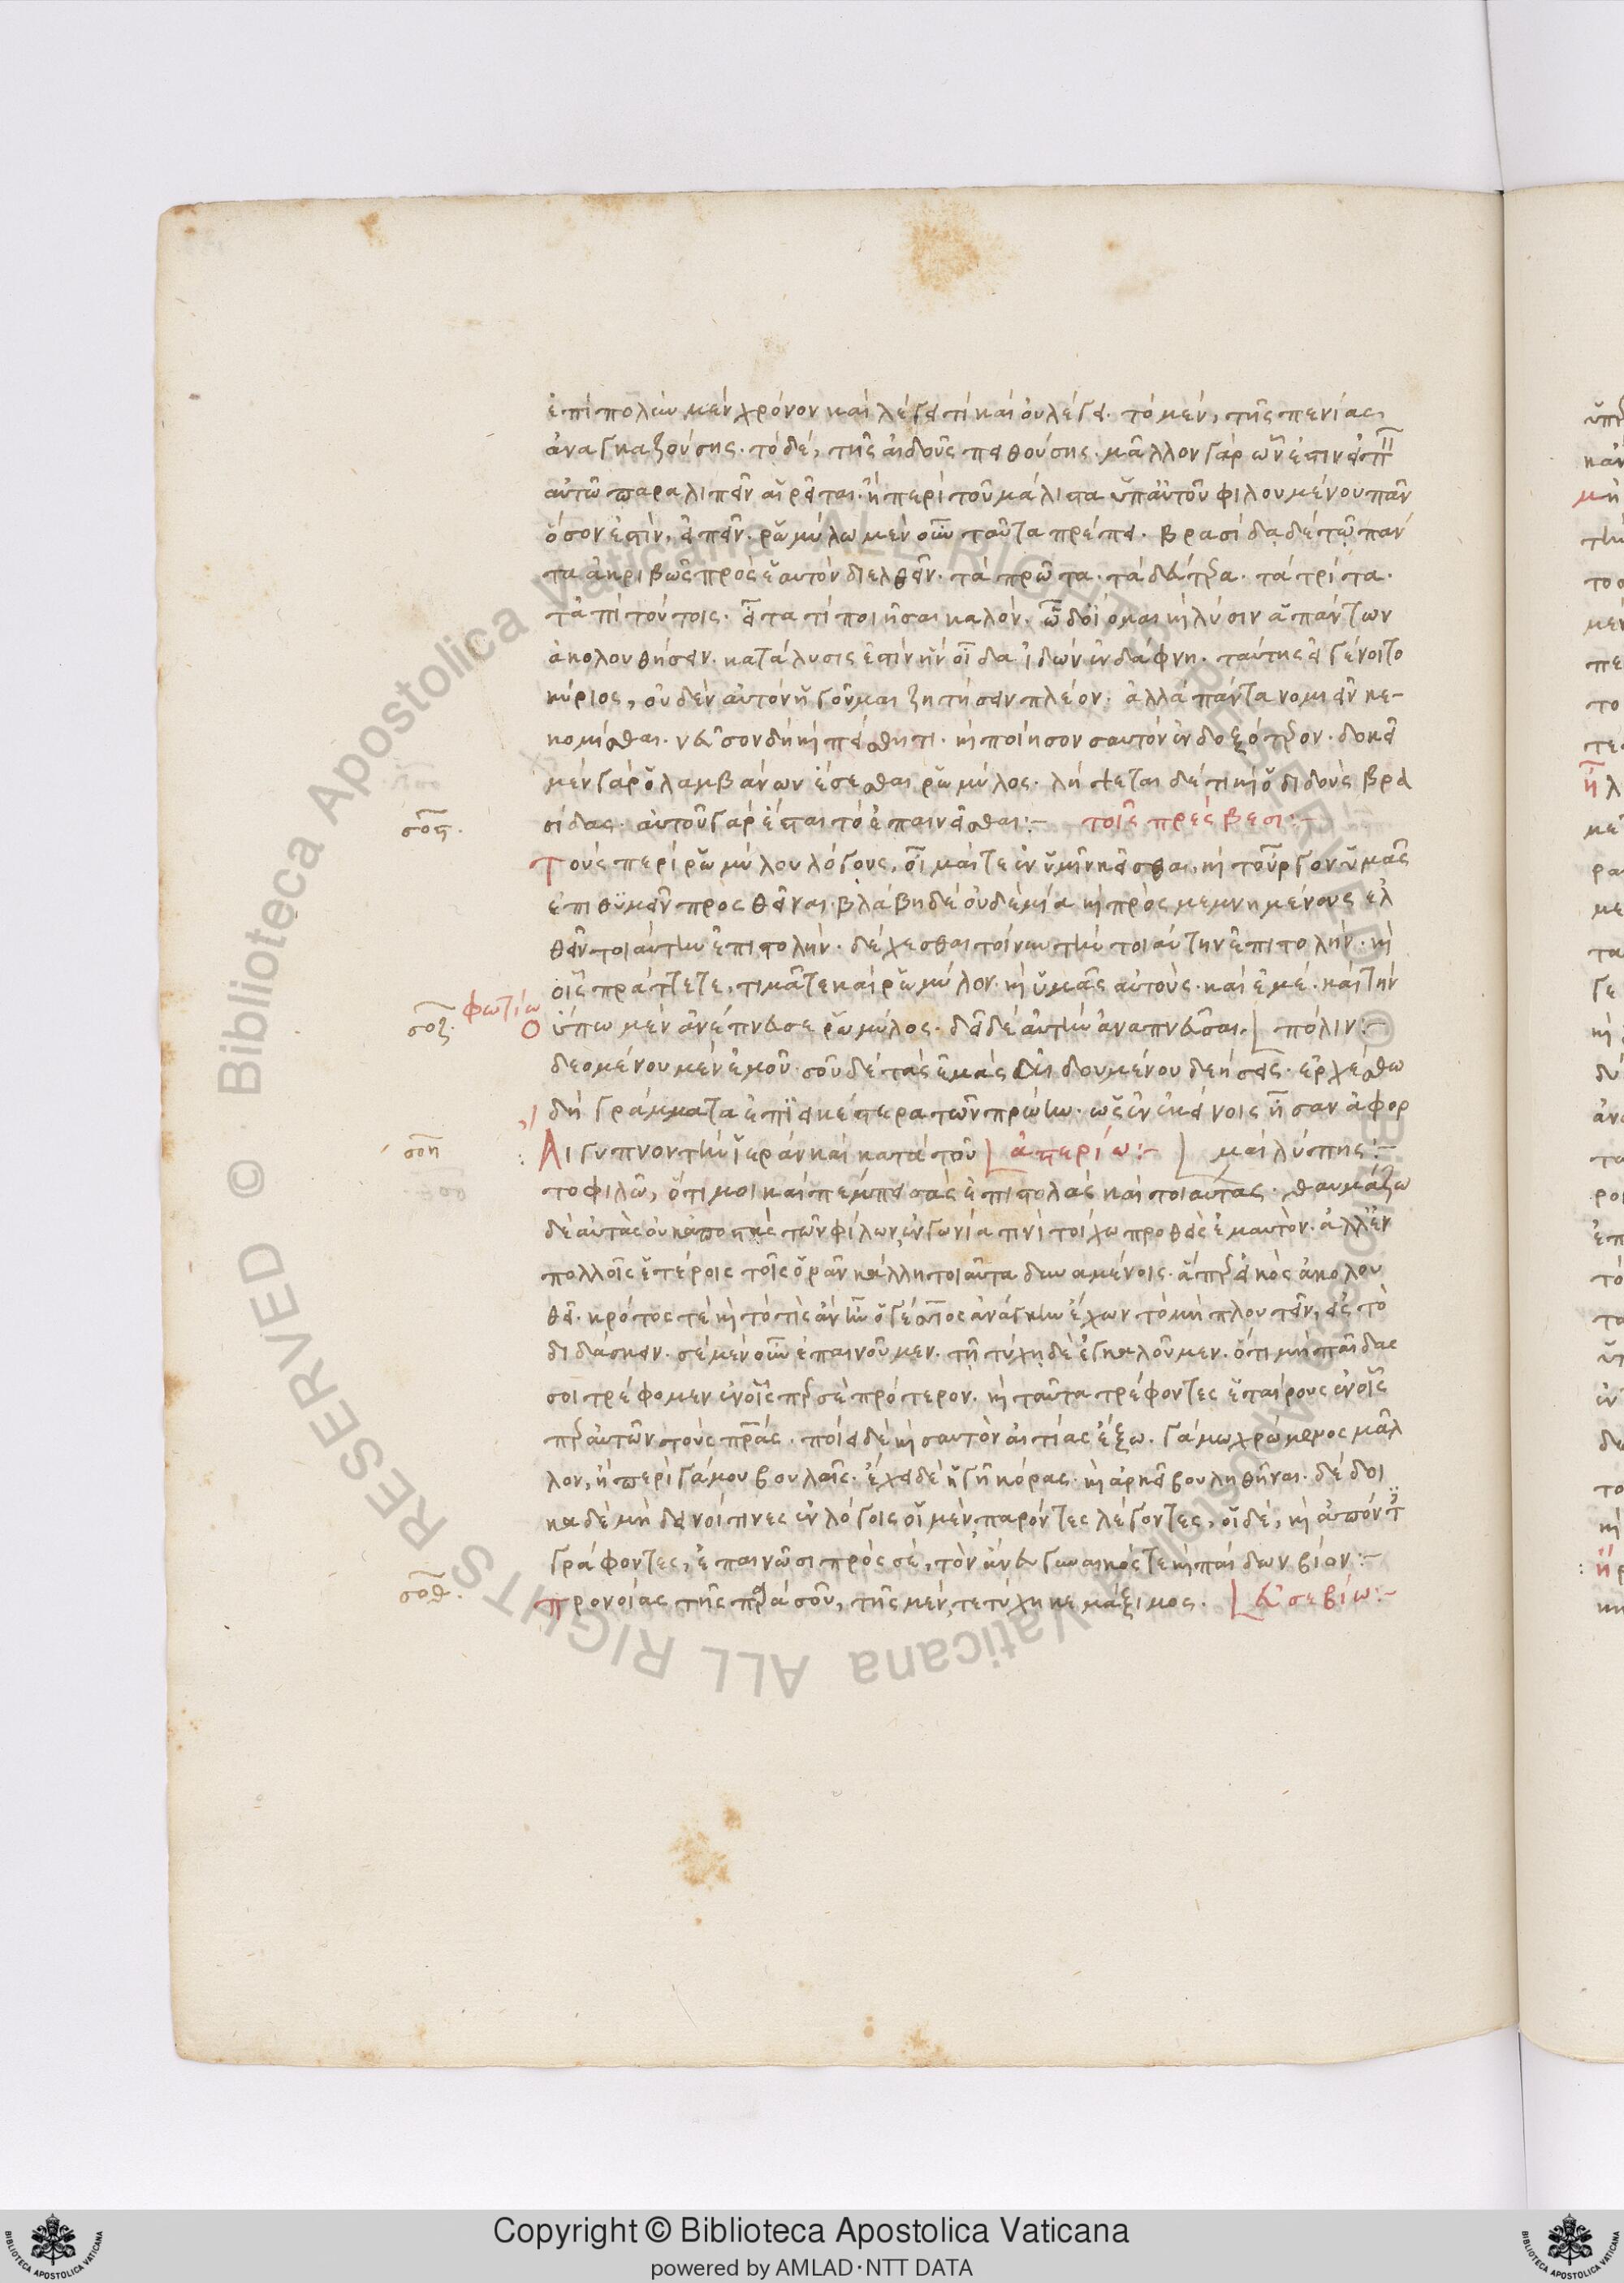 ἐπὶ πολὺν μὲν χρόνον καὶ λέγει τι καὶ οὐ λέγει. τὸ μὲν, τῆς πενίας
ἀναγκαζούσης. τὸ δὲ, τῆς αἰδοῦς πειθούσης. μᾶλλον γὰρ ὧν ἐστιν
αὐτῶ παραλιπεῖν αἱρεῖται. ἢ περὶ τοῦ μάλιστα ὑπ αὐτοῦ φιλουμένου πᾶν
ὅσον ἐστὶν, εἰπεῖν. ῥωμύλω μὲν οὖν ταῦτα πρέπει. βρασίδα δέ τω πάν
τα ἀκριβῶς πρὸς ἑαυτὸν διελθεῖν. τὰ πρῶτα. τὰ δεύτερα. τὰ τρίτα.
τἀπὶ τούτοις. εἶτα τί ποιῆσαι καλόν. ὧ δὴ οἶμαι καὶ λύσιν ἁπάντων
ἀκολουθήσειν. κατάλυσις ἐστὶν ἣν οἶδα ἰδὼν ἐν δάφνη. ταύτης εἰ γένοιτο
κύριος, οὐδὲν αὐτὸν ἡγοῦμαι ζητήσειν πλέον. ἀλλὰ πάντα νομιεῖν κε-
κομίσθαι. νεῦσον δὴ καὶ πείσθητι. καὶ ποίησον σαυτὸν ἐνδοξότερον. δοκεῖ
μὲν γὰρ ὁ λαμβάνων ἔσεσθαι ῥωμύλος. λήψεται δέ τι καὶ ὁ διδοὺς βρα
σίδας. αὐτοῦ γὰρ ἔσται τὸ ἐπαινεῖσθαι:– τοῖς πρέσβεσι:–
σος.
Τοὺς περὶ ῥωμύλου λόγους, οἶμαί τε ἐν ὑμῖν κεῖσθαι, καὶ τοὖργον ὑμᾶς
ἐπιθυμεῖν προσθεῖναι. βλάβη δὲ οὐδεμία καὶ πρὸς μεμνημένους ἐλ
θεῖν τοιαύτην ἐπιστολήν. δέχεσθαι τοίνυν τὴν τοιαύτην ἐπιστολήν. καὶ
οἷς πράττετε, τιμᾶτε καὶ ῥωμύλον. καὶ ὑμᾶς αὐτούς. καὶ ἐμέ. καὶ τὴν
φωτίω
σοζ. Οὔπω μὲν ἀνέπνευσε ῥωμύλος. δεῖ δὲ αὐτὸν ἀναπνεῦσαι. πόλιν:–
δεομένου μὲν ἐμοῦ. σοῦ δὲ τὰς ἐμὰς αἰδουμένου δεήσεις. ἐρχέσθω
δὴ γράμματα ἐπιεικέστερα τῶν πρώτων. ὡς ἐν ἐκείνοις ἦσαν ἀφορ
σοη Αἴγυπτον τὴν ἱερὰν καὶ κατὰ τοῦ ἀστερίω:– μαὶ λύπης:–
το φιλῶ, ὅτι μοι καὶ πέμπει σὰς ἐπιστολὰς καὶ τοιαύτας. θαυμάζω
δὲ αὐτὰς οὐκ ἀποστὰς τῶν φίλων, ἐν γωνία τινὶ τοίχω προσθεὶς ἐμαυτόν. ἀλλ ἐν
πολλοῖς ἑτέροις τοῖς ὁρᾶν κάλλη τοιαῦτα δυναμένοις.
θεῖ. κρότος τὲ καὶ τὸ τίς ἂν ἔχων τὸ μὴ πλουτεῖν, εἰς τὸ
διδάσκειν. σὲ μὲν οὖν ἐπαινοῦμεν. τῆ τύχη δὲ ἐγκαλοῦμεν. ὅτι μὴ παῖδας
σοι τρέφομεν ἐν οἷς πρότερον. καὶ ταῦτα τρέφοντες ἑταίρους ἐν οἷς
αὐτῶν τοὺς πατέρας. ποίει δὲ καὶ σαυτὸν αἰτίας ἔξω. γάμω χρώμενος μᾶλ
λον, ἢ περὶ γάμου βουλαῖς. ἔχει δὲ ἡ γῆ κόρας. καὶ ἀρκεῖ βουληθῆναι. δέδοι
κα δὲ μὴ δεινοί τινες ἐν λόγοις οἱ μὲν παρόντες λέγοντες, οἱ δὲ, καὶ ἀπόντες
γράφοντες, ἐπαινῶσι πρὸς σὲ, τὸν ἄνευ γυναικός τε καὶ παίδων βίον:–
σοθ. Προνοίας τῆς παρὰ σοῦ, τῆς μὲν, τετύχηκε μάξιμος. εὐσεβίω:–
Copyright © Biblioteca Apostolica Vaticana
powered by AMLAD·NTT DATA